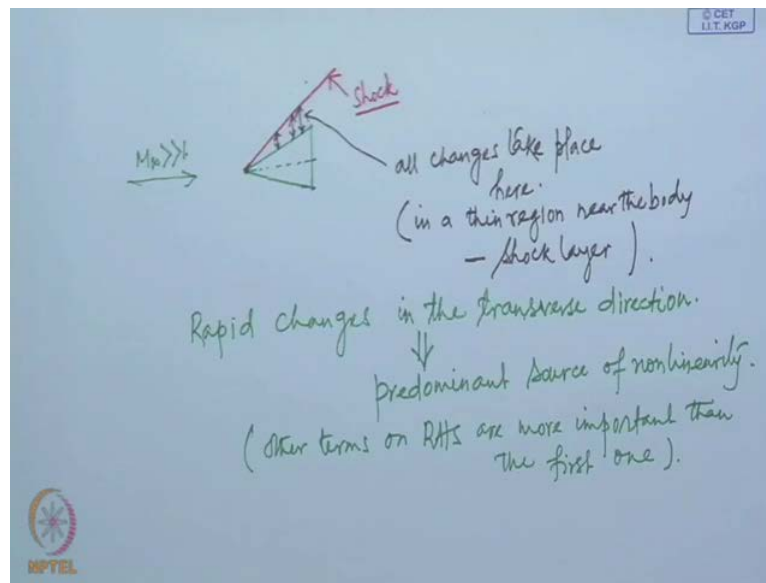 © CET
I.I.T. KGP
Shock
M∞>>1
all changes take place
here.
(in a thin region near the body
– shock layer).
Rapid changes in the transverse direction.
⇓
predominant source of nonlinearity.
(Other terms on RHS are more important than
the first one).
NPTEL